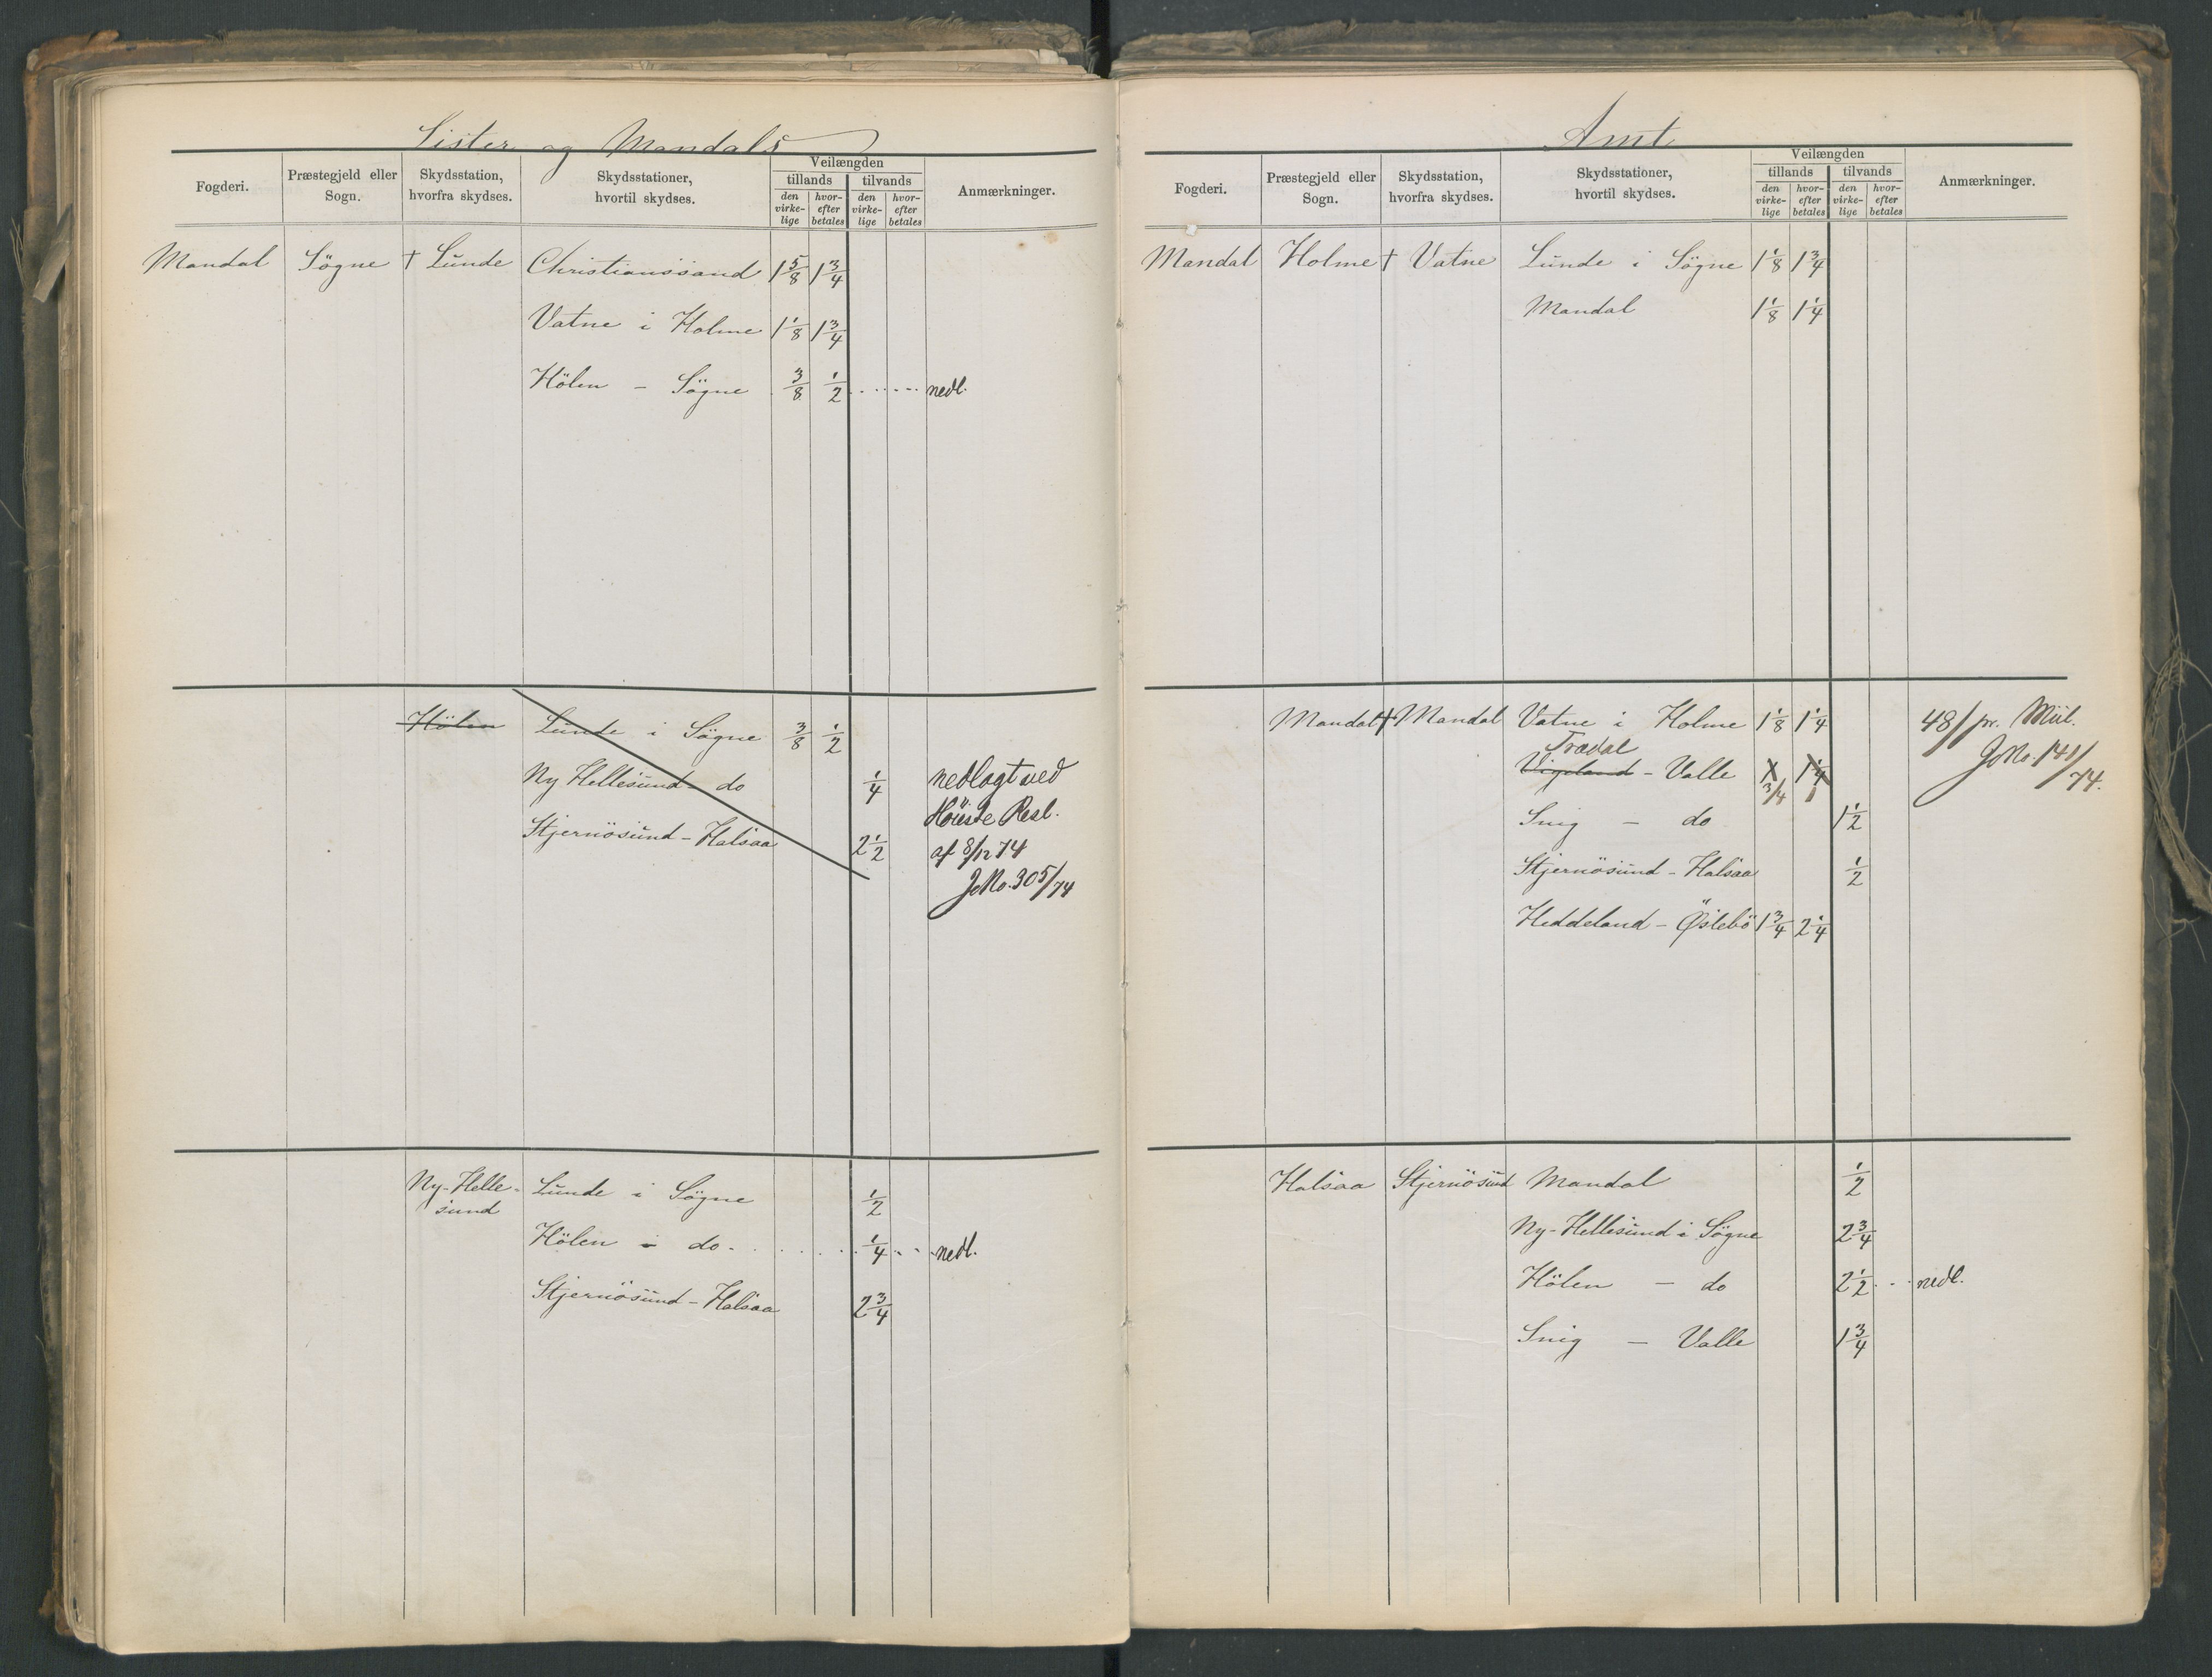 Lister og Mandals
Fogderi. Præstegjeld eller Sogn. Skydsstation, hvorfra skydses. Skydsstationer, hvortil skydses. Veilængden tillands den virke-lige hvor-efter betales tilvands den virke-lige hvor-efter betales Anmærkninger.
Mandal Sögne † Lunde Christianssand 1 5/8 1 3/4
Vatne i Holme 1 1/8 1 3/4
Hölen - Sögne 3/8 1/2 nedl.
Hölen Lunde i Sögne 3/8 1/2
Ny Hellesund - do 1/4 nedlagt ved
Höieste Resl.
Stjernösund - Halsaa 2 1/2 af 8/12 74
J.No. 305/74
Ny-Helle-sund Lunde i Sögne 1/2
Hölen - do. 1/4 nedl.
Stjernösund - Halsaa 2 3/4
Amt
Fogderi. Præstegjeld eller Sogn. Skydsstation, hvorfra skydses. Skydsstationer, hvortil skydses. Veilængden tillands den virke-lige hvor-efter betales tilvands den virke-lige hvor-efter betales Anmærkninger.
Mandal Holme † Vatne Lunde i Sögne 1 1/8 1 3/4
Mandal 1 1/8 1 1/4
Mandal † Mandal Vatne i Holme 1 1/8 1 1/4 48/ pr. Miil.
Trædal J.No. 141/74.
Vigeland - Valle 1 1 1/4
3/4 1
Snig - do 1 1/2
Stjernösund - Halsaa 1/2
Heddeland - Öslebö 1 3/4 2 1/4
Halsaa Stjernösund Mandal 1/2
Ny-Hellesund i Sögne 2 3/4
Hölen - do 2 1/2 nedl.
Snig - Valle 1 3/4